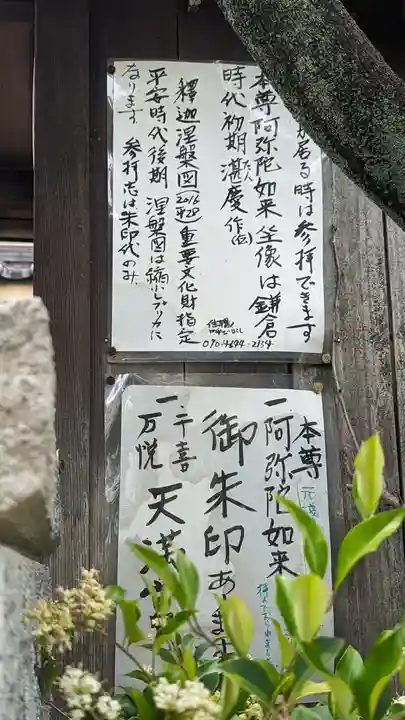 居る時は参拝できます
本尊阿弥陀如来坐像は鎌倉
時代初期湛慶作
たん
釋迦涅槃図(2016 H28)重要文化財指定
平安時代後期 涅槃図は縮小レプリカに
なります 参拝志は朱印代のみ
090-4694-2134
本尊
一阿弥陀如来
御朱印あります
一千喜
一万悦 天満